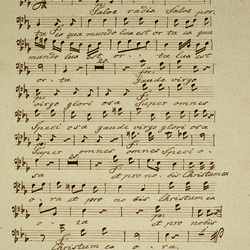 Salve radix Salve por
ta ex qua mundo lux est or ta ex qua
mundo lux est or ta lux est
or ta Gaude virgo
virgo glori osa Super omnes
Speci osa gaude virgo glori osa
Super omnes omnes Speci o
sa Et pro no bis Christum ex
o ra et pro no bis Christum ex
o ra et pro nobis
Christum ex o ra.